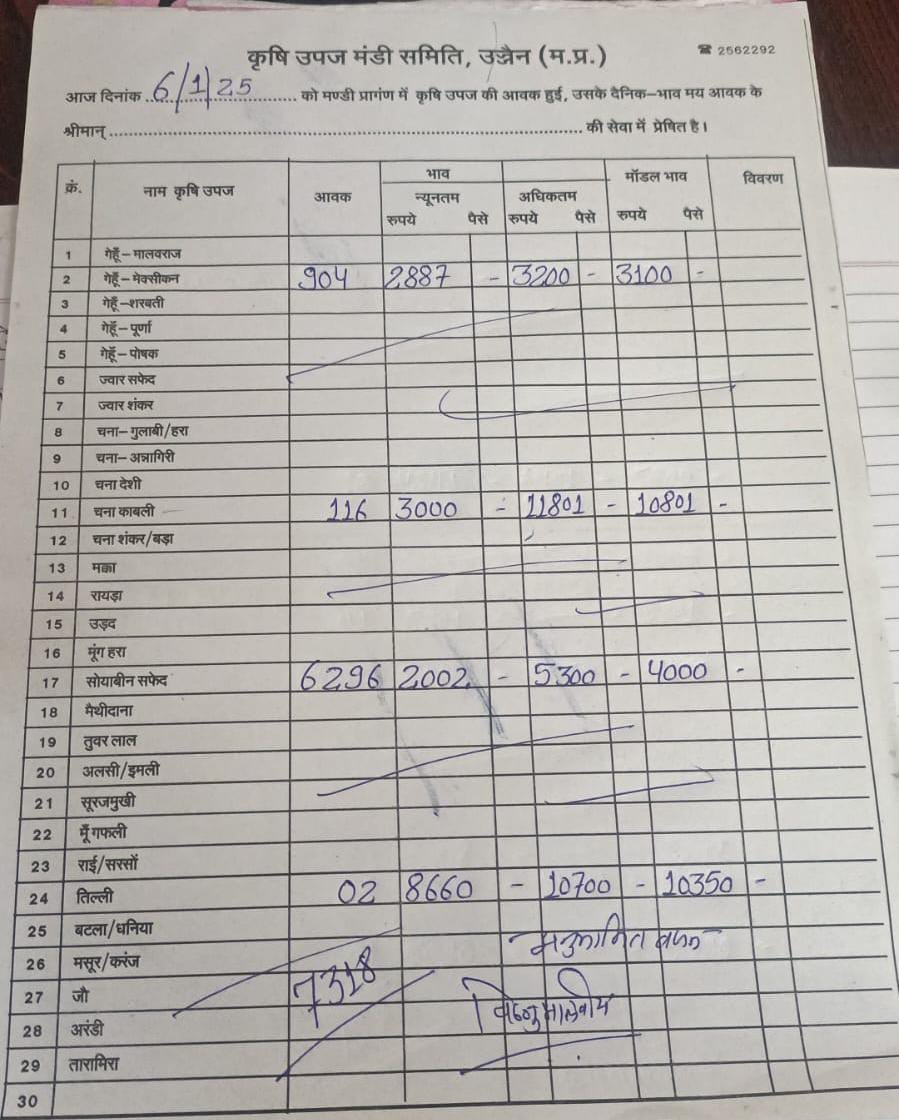 कृषि उपज मंडी समिति, उज्जैन (म.प्र.) ☎ 2562292
आज दिनांक 6/1/25 को मण्डी प्रागंण में कृषि उपज की आवक हुई, उसके दैनिक-भाव मय आवक के
श्रीमान् की सेवा में प्रेषित है।
क्रं. नाम कृषि उपज आवक भाव मॉडल भाव विवरण
न्यूनतम अधिकतम
रुपये पैसे रुपये पैसे रुपये पैसे
1 गेहूँ-मालवराज
2 गेहूँ-मेक्सीकन 904 2887 - 3200 - 3100 -
3 गेहूँ-शरबती
4 गेहूँ-पूर्णा
5 गेहूँ-पोषक
6 ज्वार सफेद
7 ज्वार शंकर
8 चना-गुलाबी/हरा
9 चना-अन्नागिरी
10 चना देशी
11 चना काबली 116 3000 - 11801 - 10801 -
12 चना शंकर/बड़ा
13 मक्का
14 रायड़ा
15 उड़द
16 मूंग हरा
17 सोयाबीन सफेद 6296 2002 - 5300 - 4000 -
18 मैथीदाना
19 तुवर लाल
20 अलसी/इमली
21 सूरजमुखी
22 मूँगफली
23 राई/सरसों
24 तिल्ली 02 8660 - 10700 - 10350 -
25 बटला/धनिया
26 मसूर/करंज
27 जौ 7318
28 अरंडी
29 तारामिरा
30